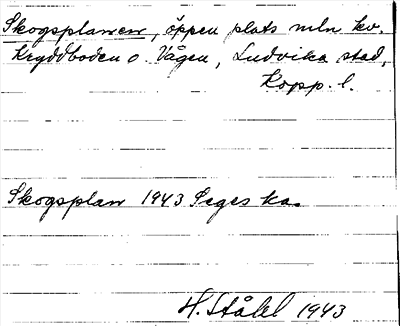 Skogsplanen, öppen plats mln kv.
Kryddboden o. Vågen, Ludvika stad,
Kopp. l.
Skogsplan 1943 Seges ka.
H. Ståhl 1943